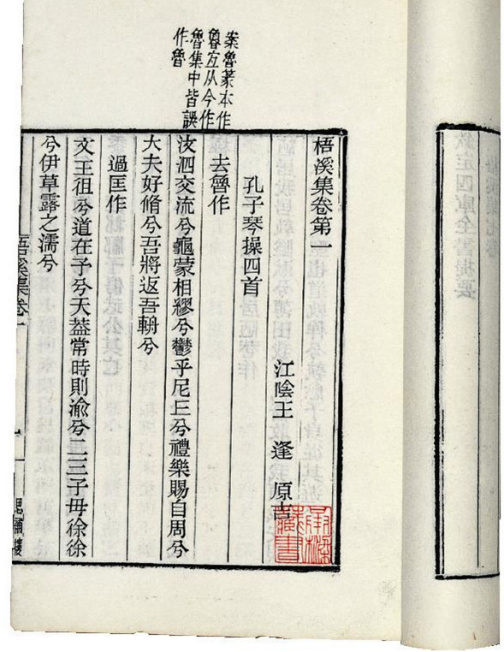 案魯篆本作
魯宜从今作
魯集中皆誤
作魯
梧溪集卷第一
江陰王 逢 原吉
孔子琴操四首
去魯作
汶泗交流兮龜蒙相繆兮鬱乎尼丘兮禮樂賜自周兮
大夫好脩兮吾將返吾輈兮
過匡作
文王徂兮道在予兮天葢常時則渝兮二三子毋徐徐
兮伊草露之濡兮
梧溪集卷一